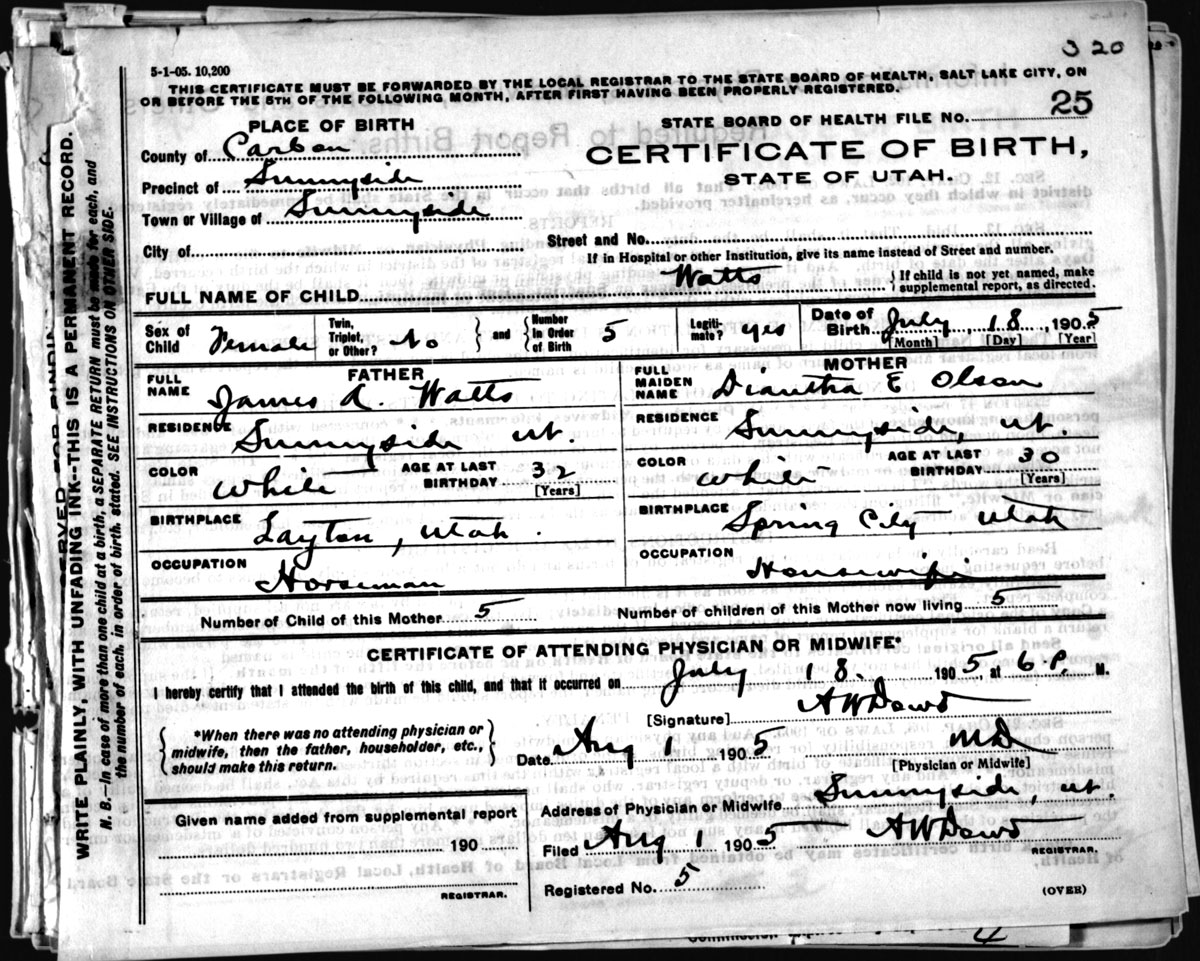 3 20
5-1-05. 10,200
THIS CERTIFICATE MUST BE FORWARDED BY THE LOCAL REGISTRAR TO THE STATE BOARD OF HEALTH, SALT LAKE CITY, ON
OR BEFORE THE 5TH OF THE FOLLOWING MONTH, AFTER FIRST HAVING BEEN PROPERLY REGISTERED.
PLACE OF BIRTH
STATE BOARD OF HEALTH FILE NO. 25
County of Carbon
CERTIFICATE OF BIRTH,
Precinct of Sunnyside
STATE OF UTAH.
Town or Village of Sunnyside
City of
Street and No.
If in Hospital or other Institution, give its name instead of Street and number.
FULL NAME OF CHILD Watts { If child is not yet named, make supplemental report, as directed.
Sex of Child Female Twin, Triplet, or Other? No } and { Number in Order of Birth 5 Legiti- mate? yes Date of Birth July, 18, 1905
[Month] [Day] [Year]
FATHER
FULL NAME James A. Watts
RESIDENCE Sunnyside ut.
COLOR White AGE AT LAST BIRTHDAY 32 [Years]
BIRTHPLACE Layton, Utah.
OCCUPATION Horseman
MOTHER
FULL MAIDEN NAME Diantha E Olson
RESIDENCE Sunnyside, ut.
COLOR White AGE AT LAST BIRTHDAY 30 [Years]
BIRTHPLACE Spring City Utah
OCCUPATION Housewife
Number of Child of this Mother 5 Number of children of this Mother now living 5
CERTIFICATE OF ATTENDING PHYSICIAN OR MIDWIFE*
I hereby certify that I attended the birth of this child, and that it occurred on July 18. 1905, at 6 P. M.
*When there was no attending physician or
midwife, then the father, householder, etc.,
should make this return.
[Signature] A W Dowd
Date Aug 1 1905 MD
[Physician or Midwife]
Given name added from supplemental report
190
REGISTRAR.
Address of Physician or Midwife Sunnyside, ut.
Filed Aug 1 1905 A W Dowd
REGISTRAR.
Registered No. 5
(OVER)
WRITE PLAINLY, WITH UNFADING INK--THIS IS A PERMANENT RECORD.
N. B.--In case of more than one child at a birth, a SEPARATE RETURN must be made for each, and
the number of each, in order of birth, stated. SEE INSTRUCTIONS ON OTHER SIDE.
4